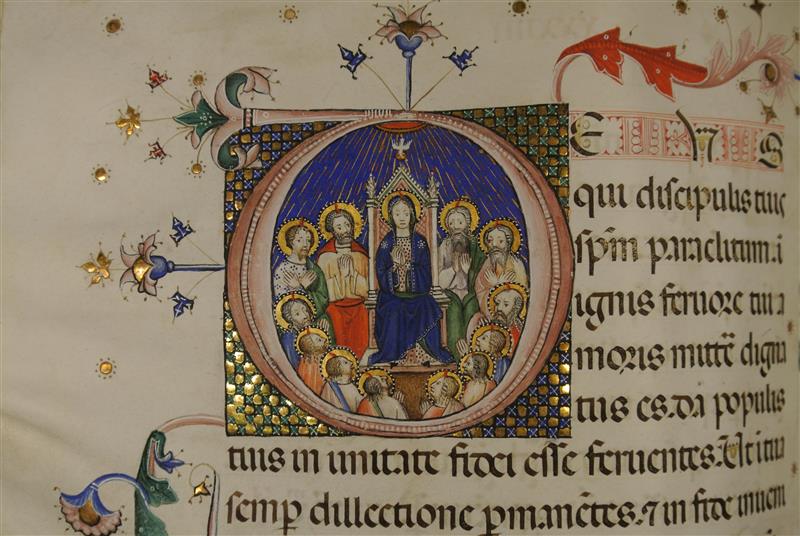 DEUS
qui discipulis tuis
sp̄m paraclitum i
ignis feruore tui a
moris mittē digna
tus es. da populis
tuis in unitate fidei esse feruentes. Ut i tua
semꝑ dillectione ꝑmanētes. ⁊ in fide inueni